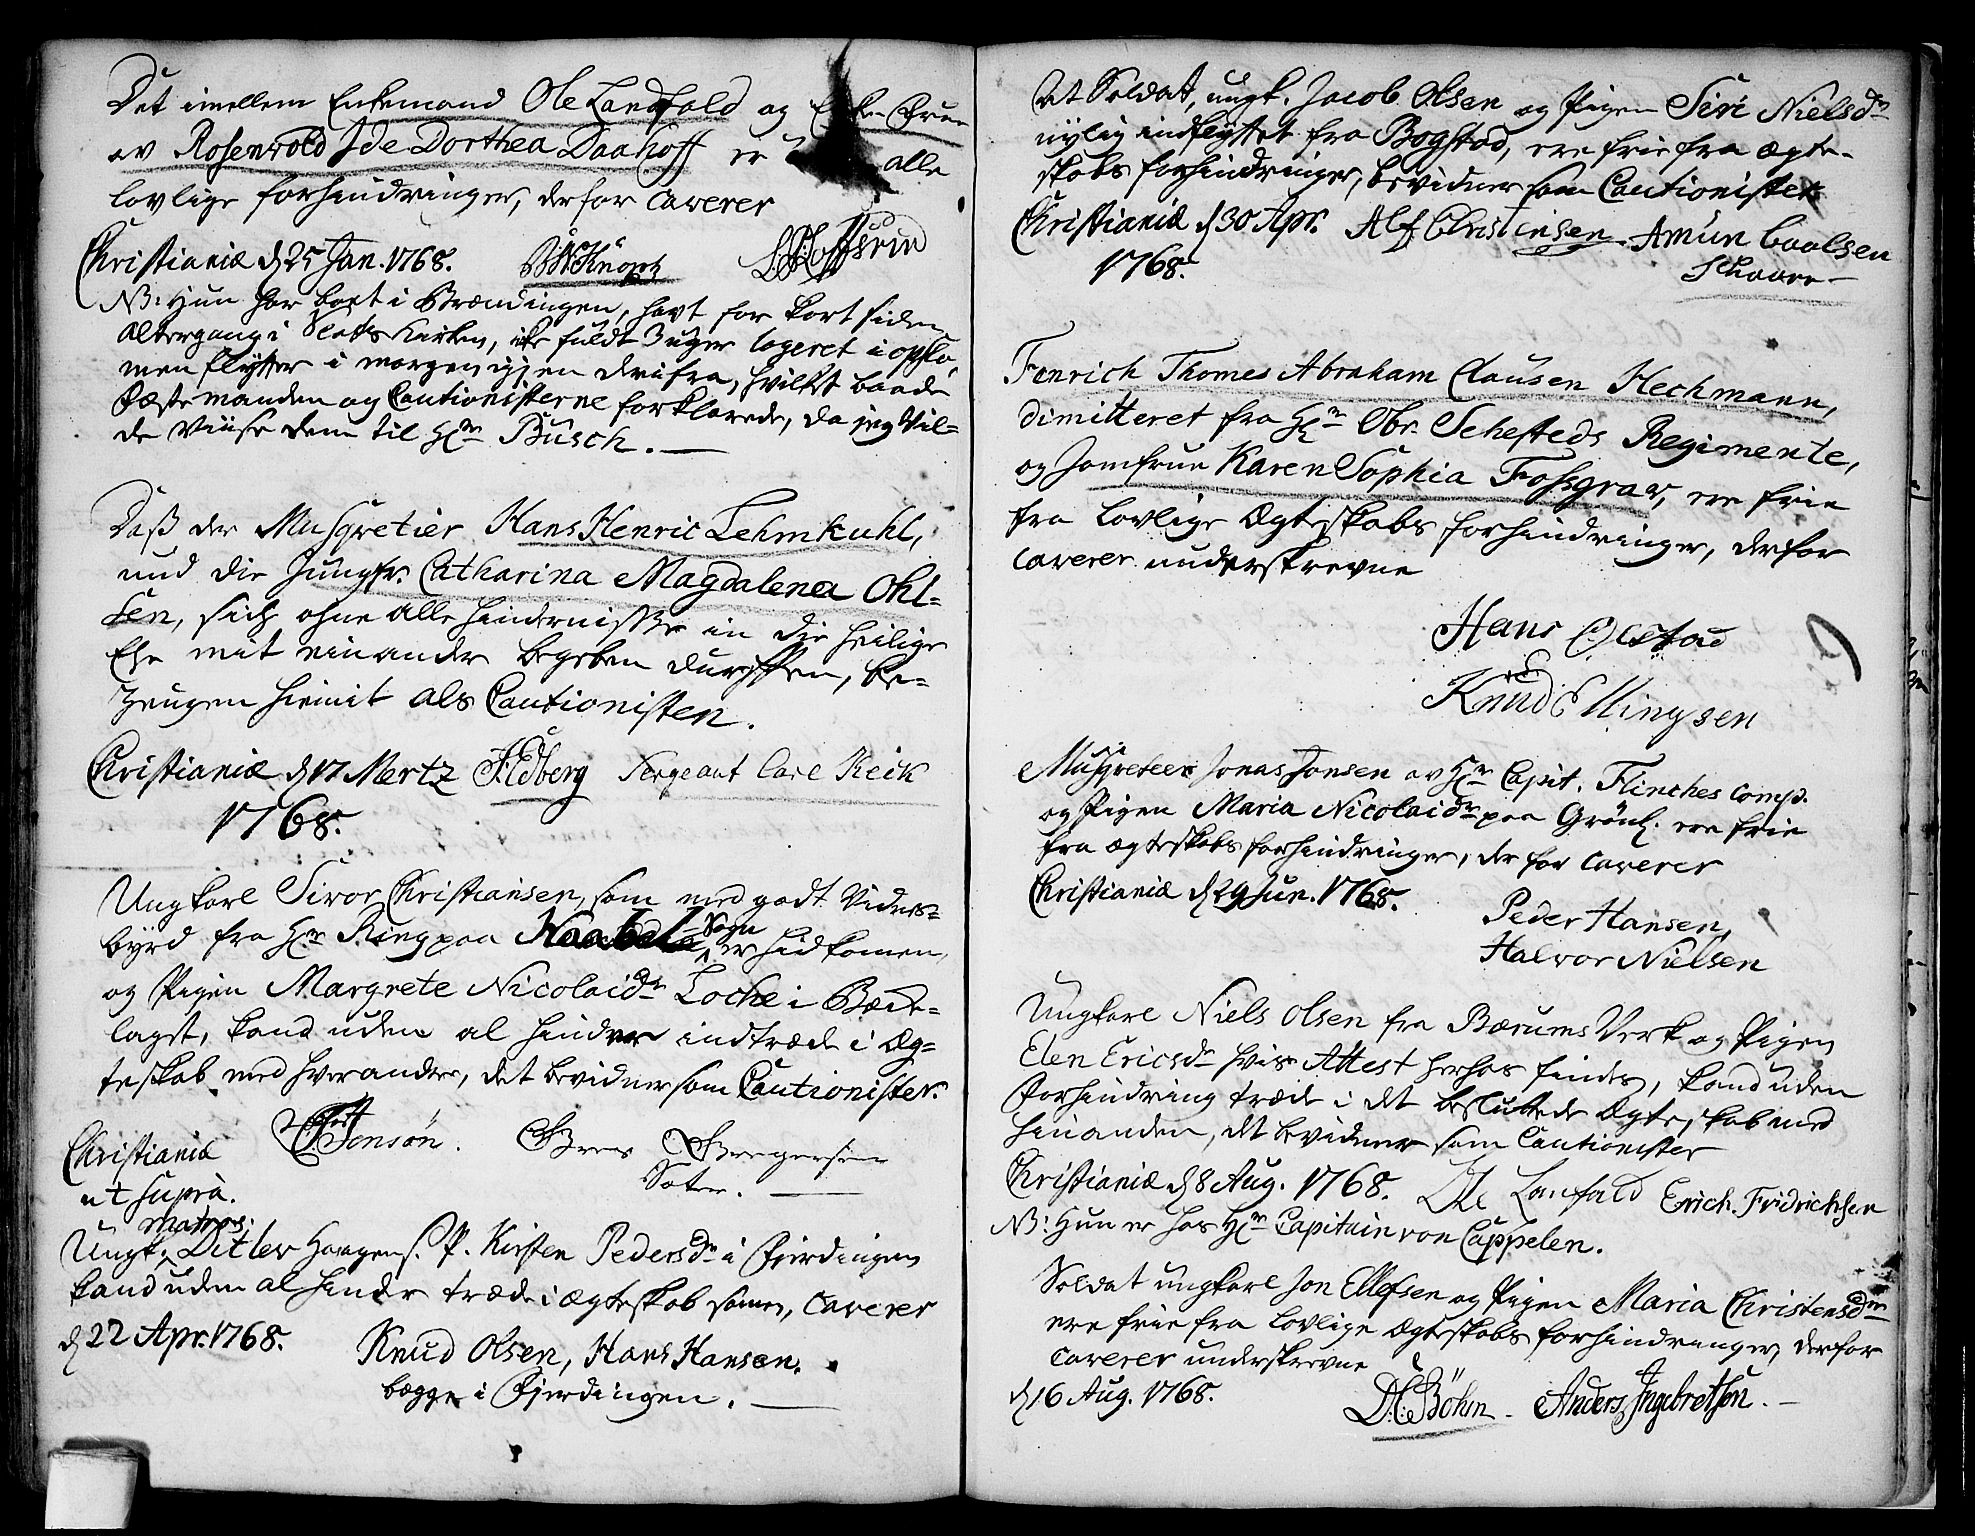 Det imellem Enkemand Ole Landfald og Frue
av Rosenvold Ide Dorthea Daahoff er alle
lovlige forhindringer, derfor caverer
Christianiæ d 25 Jan. 1768. Knoph L. Hoffsrud
NB: Hun har boet i Brændingen, havt for kort siden
Altergang i Slots Kirken, ike fuldt 3 uger logeret i opslo,
men flytter i morgen igjen derifra, hvilket baade
Fæstemanden og Cautionisterne forklarede, da jeg vil-
de viise dem til Hr Busch.
Daß der Musqvetier Hans Henric Lehmkuhl,
und die Jungfr. Catharina Magdalena Ohl-
sen, sich ohne alle Hindernisse in die heilige
Ehe mit einander begeben dürffen, be-
zeugen hiemit als Cautionisten.
Christianiæ d 17 Mertz Edberg Sergeant Carl Reik
1768.
Ungkarl Sivor Christiansen, som med godt Vidnes-
byrd fra Hr Ring paa Sogn er hidkomen,
og Pigen Margrete Nicolaidr Locke i Bæde-
lagst, kand uden al hinder indtræde i Æg-
teskab med hverandre, det bevidner som Cautionister.
Christianiæ Jonsøn. Gregersen
ut supra. Sater.
matros:
Ungk. Ditlev Haagens. P. Kirsten Pedersdr i Fierdingen
kand uden al hinder træde i ægteskab samen, caverer
d 22 Apr. 1768. Knud Olsen, Hans Hansen.
begge i Fjerdingen.
At Soldat, ungk. Jacob Olsen og Pigen Siri Nielsdr
nylig indflyttet fra Bogstad, ere frie fra Ægte-
skabs forhindringer, bevidner som Cautionister
Christianiæ d 30 Apr. Alf Christensen. Amun Paalsen
1768. Skaare
Fenrich Thomes Abraham Clausen Hechmann,
dimitteret fra Hr Obr. Schesteds Regimente,
og Jomfrue Karen Sophia Fossgrav, ere frie
fra lovlige Ægteskabs forhindringer, derfor
caverer underskrevne
Hans Olstad
Knud Ellingsen
Musqveteer Jonas Jonsen av Hr Capit. Flinthes Comp.
og Pigen Maria Nicolaidr paa Grönl. ere frie
fra ægteskabs forhindringer, der for caverer
Christianiæ d 29 Jun. 1768. Peder Hansen,
Halvor Nielsen
Ungkarl Niels Olsen fra Bærums Verk og Pigen
Elen Ericsdr hvis Attest herhos findes, kand uden
forhindring træde i det besluttede Ægteskab med
hinanden, det bevidner som Cautionister
Christianiæ d 8 Aug. 1768. Ole Lanfald Erich Fridrichsen
NB: Hun er hos Hr Capitain von Cappelen.
Soldat ungkarl Jon Ellefsen og Pigen Maria Christensdr
ere frie fra lovlige ægteskabs forhindringer, derfor
caverer underskrevne
d 16 Aug. 1768. D. C. Böhm. Anders Ingebretsen.